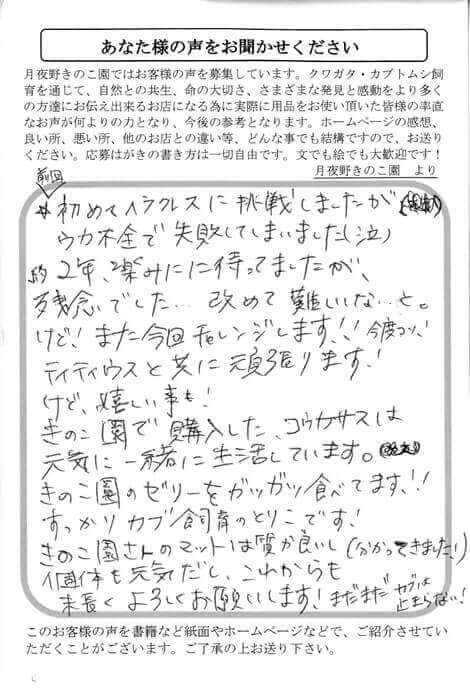 あなた様の声をお聞かせください
月夜野きのこ園ではお客様の声を募集しています。クワガタ・カブトムシ飼
育を通じて、自然との共生、命の大切さ、さまざまな発見と感動をより多く
の方達にお伝え出来るお店になる為に実際に用品をお使い頂いた皆様の率直
なお声が何よりの力となり、今後の参考となります。ホームページの感想、
良い所、悪い所、他のお店との違い等、どんな事でも結構ですので、お送り
ください。応募はがきの書き方は一切自由です。文でも絵でも大歓迎です！
月夜野きのこ園 より
前回
初めてヘラクレスに挑戦しましたが
ウカ不全で失敗してしまいました(泣)
約2年、楽みにに待ってましたが、
残念でした… 改めて難しいな…と。
けど！また今回チャレンジします！！今度コソ、！
ティティウスと共に頑張ります！
けど、嬉しい事も！
きのこ園で購入した、コウカサスは
元気に一緒に生活しています。
きのこ園のゼリーをガツガツ食べてます！！
すっかりカブ飼育のとりこです！
きのこ園さんのマットは質が良いし(分かってきました！)
個体も元気だし、これからも
末長くよろしくお願いします！まだまだカブは
止まらない！
このお客様の声を書籍など紙面やホームページなどで、ご紹介させてい
ただくことがございます。ご了承の上お送り下さい。